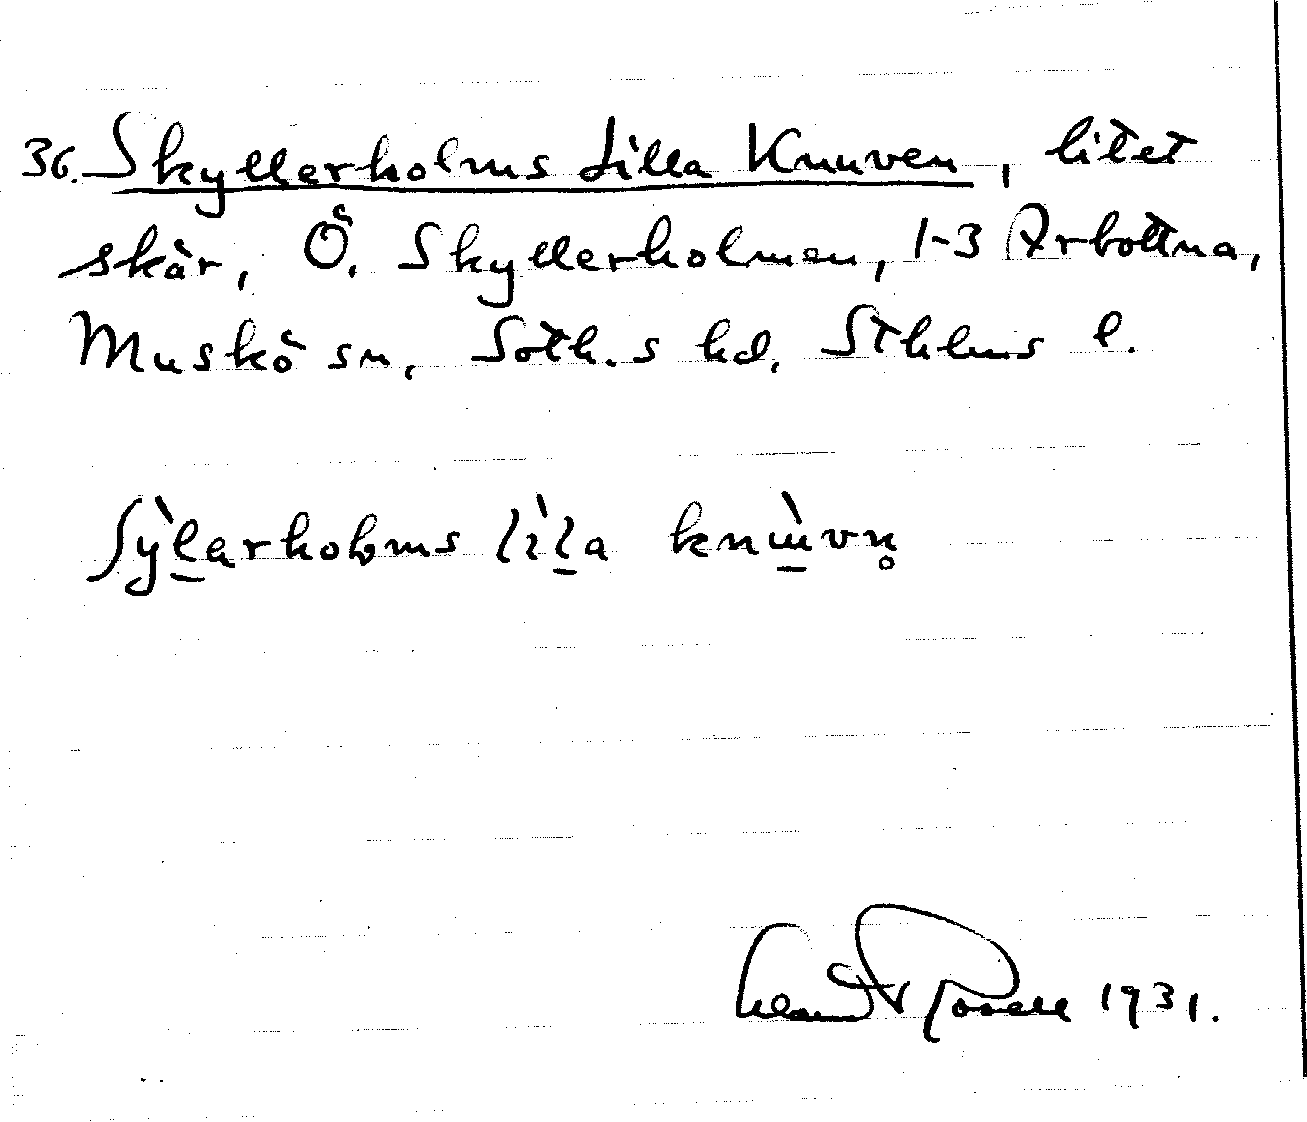 36. Skyllerholms Lilla Knuven, litet
skär, Ö. Skyllerholmen, 1-3 Arbottna,
Muskö sn, Soth.s hd, Sthlms l.
ʃỳl̠arholms lìl̠a knɯ̠̀vn̥
1931.